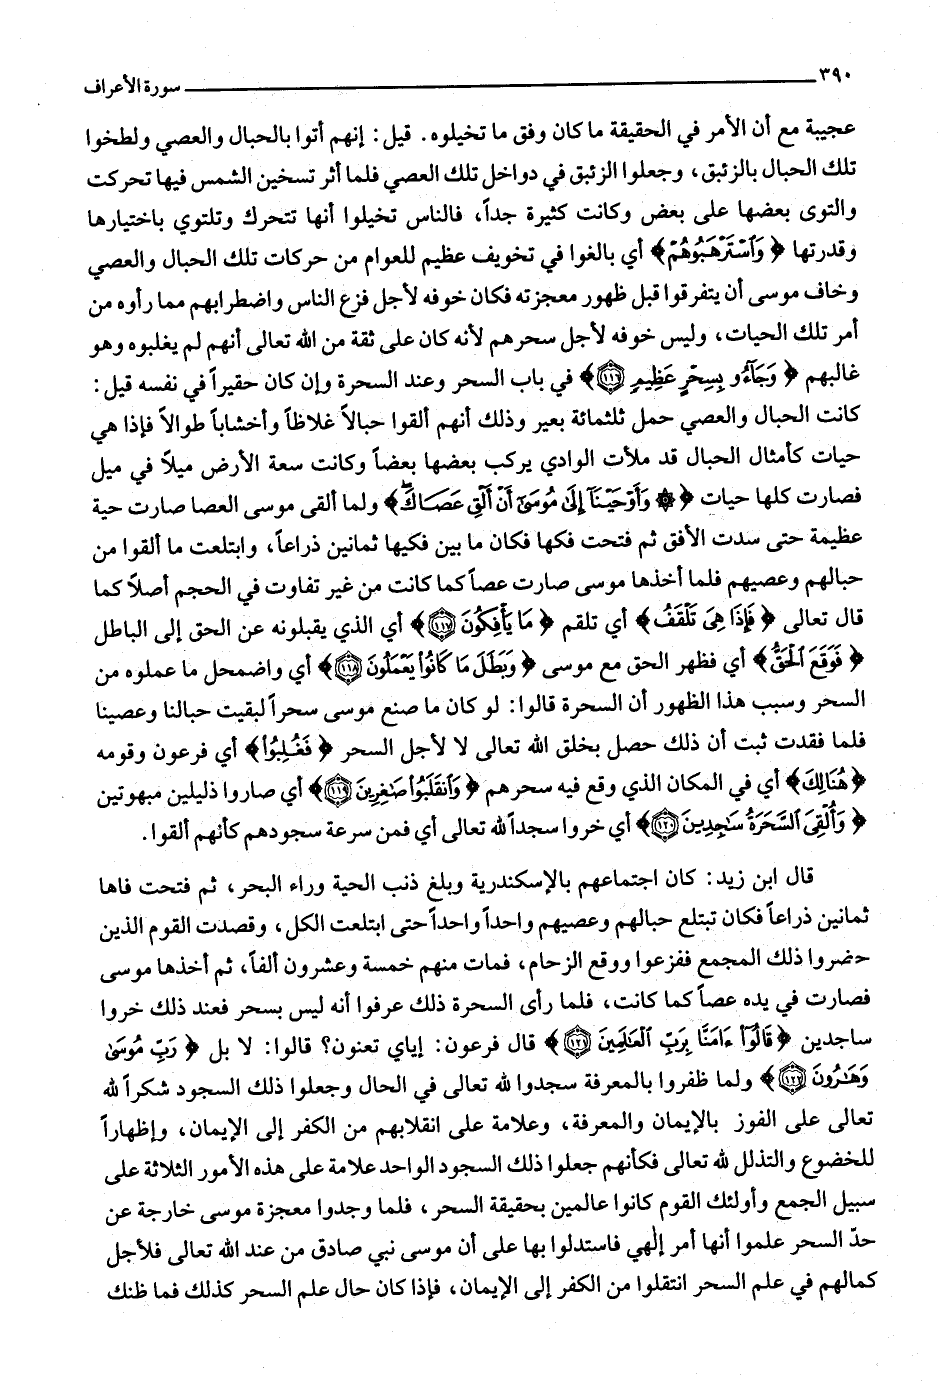 ٣٩٠ سورة الأعراف
عجيبة مع أن الأمر في الحقيقة ما كان وفق ما تخيلوه. قيل: إنهم أتوا بالحبال والعصي ولطخوا
تلك الحبال بالزئبق، وجعلوا الزئبق في دواخل تلك العصي فلما أثر تسخين الشمس فيها تحركت
والتوى بعضها على بعض وكانت كثيرة جداً، فالناس تخيلوا أنها تتحرك وتلتوي باختيارها
وقدرتها ﴿وَٱسْتَرْهَبُوهُمْ﴾ أي بالغوا في تخويف عظيم للعوام من حركات تلك الحبال والعصي
وخاف موسى أن يتفرقوا قبل ظهور معجزته فكان خوفه لأجل فزع الناس واضطرابهم مما رأوه من
أمر تلك الحيات، وليس خوفه لأجل سحرهم لأنه كان على ثقة من الله تعالى أنهم لم يغلبوه وهو
غالبهم ﴿وَجَآءُو بِسِحْرٍ عَظِيمٍ ١١٦﴾ في باب السحر وعند السحرة وإن كان حقيراً في نفسه قيل:
كانت الحبال والعصي حمل ثلثمائة بعير وذلك أنهم ألقوا حبالاً غلاظاً وأخشاباً طوالاً فإذا هي
حيات كأمثال الحبال قد ملأت الوادي يركب بعضها بعضاً وكانت سعة الأرض ميلاً في ميل
فصارت كلها حيات ﴿۞ وَأَوْحَيْنَآ إِلَىٰ مُوسَىٰٓ أَنْ أَلْقِ عَصَاكَ ۖ﴾ ولما ألقى موسى العصا صارت حية
عظيمة حتى سدت الأفق ثم فتحت فكها فكان ما بين فكيها ثمانين ذراعاً، وابتلعت ما ألقوا من
حبالهم وعصيهم فلما أخذها موسى صارت عصاً كما كانت من غير تفاوت في الحجم أصلاً كما
قال تعالى ﴿فَإِذَا هِىَ تَلْقَفُ﴾ أي تلقم ﴿مَا يَأْفِكُونَ ١١٧﴾ أي الذي يقبلونه عن الحق إلى الباطل
﴿فَوَقَعَ ٱلْحَقُّ﴾ أي فظهر الحق مع موسى ﴿وَبَطَلَ مَا كَانُوا۟ يَعْمَلُونَ ١١٨﴾ أي واضمحل ما عملوه من
السحر وسبب هذا الظهور أن السحرة قالوا: لو كان ما صنع موسى سحراً لبقيت حبالنا وعصينا
فلما فقدت ثبت أن ذلك حصل بخلق الله تعالى لا لأجل السحر ﴿فَغُلِبُوا۟﴾ أي فرعون وقومه
﴿هُنَالِكَ﴾ أي في المكان الذي وقع فيه سحرهم ﴿وَٱنقَلَبُوا۟ صَٰغِرِينَ ١١٩﴾ أي صاروا ذليلين مبهوتين
﴿وَأُلْقِىَ ٱلسَّحَرَةُ سَٰجِدِينَ ١٢٠﴾ أي خروا سجداً لله تعالى أي فمن سرعة سجودهم كأنهم ألقوا.
قال ابن زيد: كان اجتماعهم بالإسكندرية وبلغ ذنب الحية وراء البحر، ثم فتحت فاها
ثمانين ذراعاً فكان تبتلع حبالهم وعصيهم واحداً واحداً حتى ابتلعت الكل، وقصدت القوم الذين
حضروا ذلك المجمع ففزعوا ووقع الزحام، فمات منهم خمسة وعشرون ألفاً، ثم أخذها موسى
فصارت في يده عصاً كما كانت، فلما رأى السحرة ذلك عرفوا أنه ليس بسحر فعند ذلك خروا
ساجدين ﴿قَالُوٓا۟ ءَامَنَّا بِرَبِّ ٱلْعَٰلَمِينَ ١٢١﴾ قال فرعون: إياي تعنون؟ قالوا: لا بل ﴿رَبِّ مُوسَىٰ
وَهَٰرُونَ ١٢٢﴾ ولما ظفروا بالمعرفة سجدوا لله تعالى في الحال وجعلوا ذلك السجود شكراً لله
تعالى على الفوز بالإيمان والمعرفة، وعلامة على انقلابهم من الكفر إلى الإيمان، وإظهاراً
للخضوع والتذلل لله تعالى فكأنهم جعلوا ذلك السجود الواحد علامة على هذه الأمور الثلاثة على
سبيل الجمع وأولئك القوم كانوا عالمين بحقيقة السحر، فلما وجدوا معجزة موسى خارجة عن
حدّ السحر علموا أنها أمر إلٰهي فاستدلوا بها على أن موسى نبي صادق من عند الله تعالى فلأجل
كمالهم في علم السحر انتقلوا من الكفر إلى الإيمان، فإذا كان حال علم السحر كذلك فما ظنك